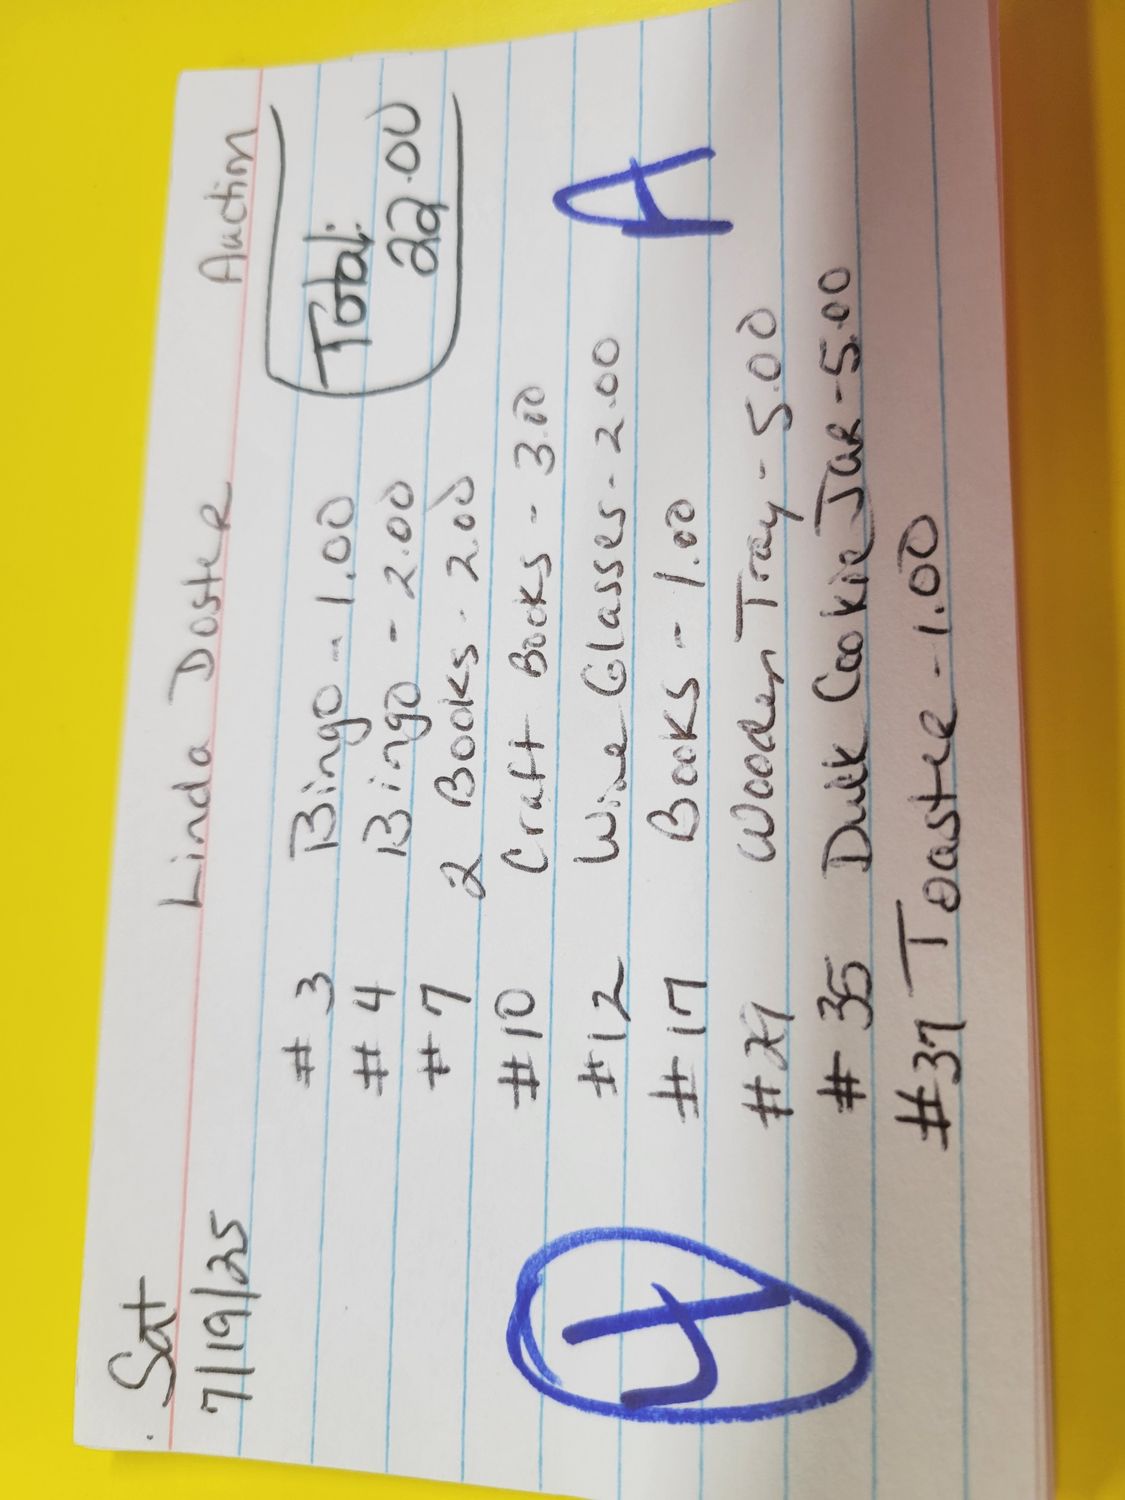 Sat
7/19/25
Linda Doster
Auction
Total:
22.00
# 3 Bingo - 1.00
# 4 Bingo - 2.00
# 7 2 Books - 2.00
#10 Craft Books - 3.00
#12 Wine Glasses - 2.00
#17 Books - 1.00
#29 Wooden Tray - 5.00
# 35 Duck Cookie Jar - 5.00
#37 Toaster - 1.00
4
A